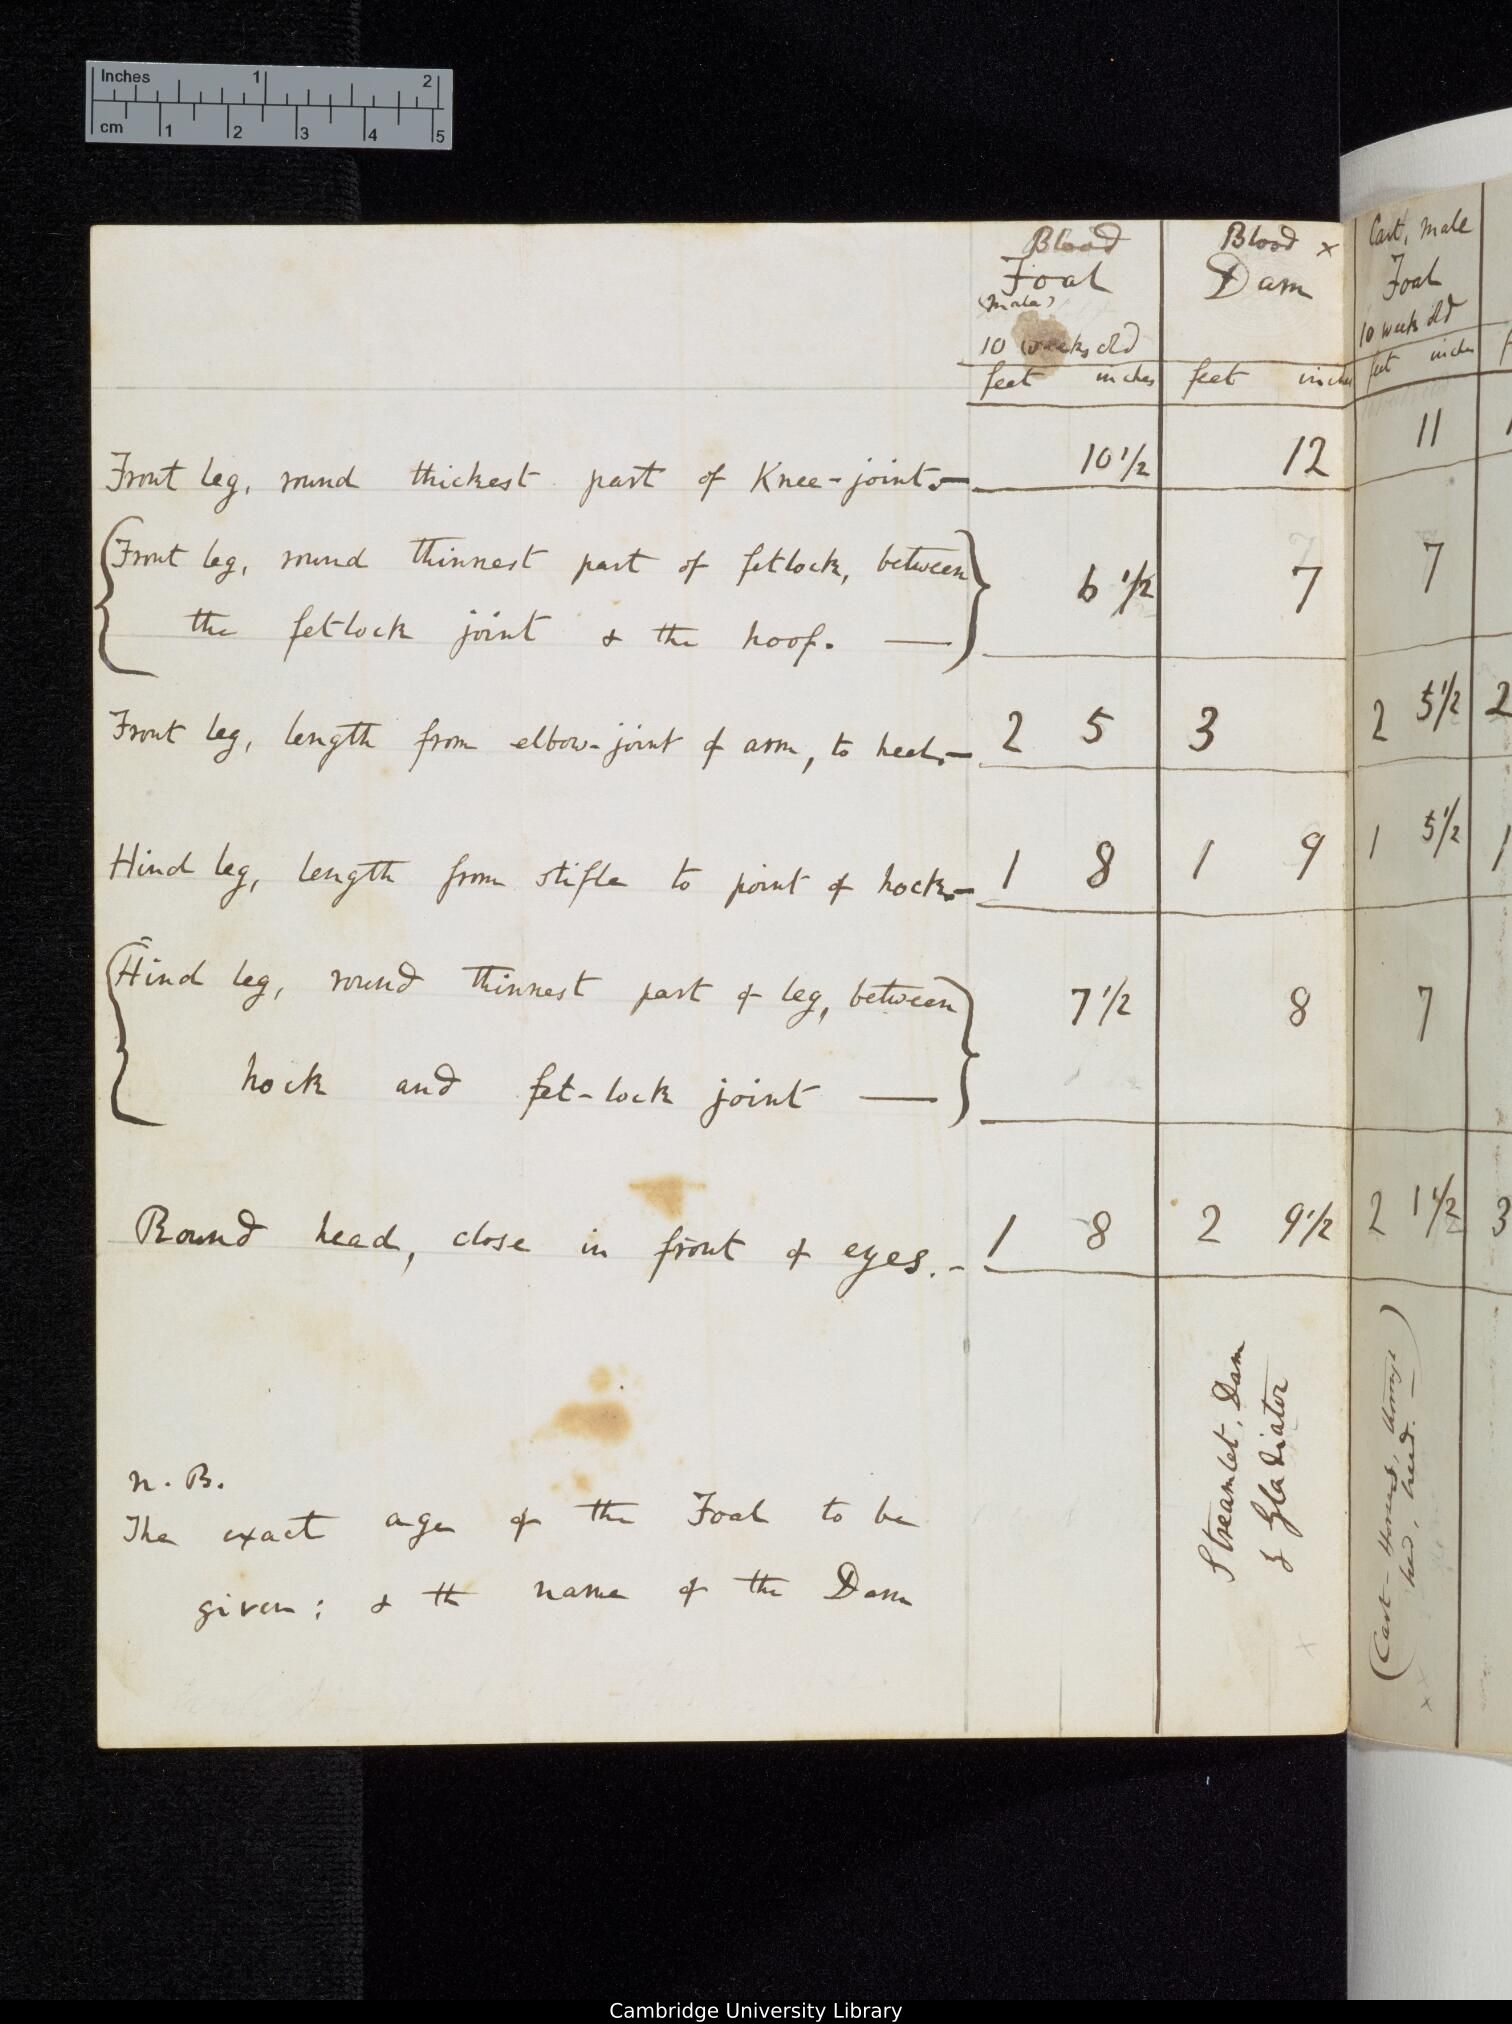 Inches 1 2
cm 1 2 3 4 5
Blood Blood x Cart, male
Foal Dam Foal
(Male)
10 weeks old 10 weeks old
feet inches feet inches feet inches
Front leg, round thickest part of Knee-joint.— 10 1/2 12 11
Front leg, round thinnest part of fetlock, between
the fetlock joint & the hoof. — 6 1/2 7 7
Front leg, length from elbow-joint of arm, to heel.— 2 5 3 2 5 1/2 2
Hind leg, length from stifle to point of hock.— 1 8 1 9 1 5 1/2 1
Hind leg, round thinnest part of leg, between 7 1/2 8 7
hock and fet-lock joint —
Round head, close in front of eyes.- 1 8 2 9 1/2 2 1 1/2 3
n. B.
The exact age of the Foal to be
given; & th name of the Dam
Streamlet, Dam
of Gladiator
(Cart-Horses,
bred, bred. —
Cambridge University Library